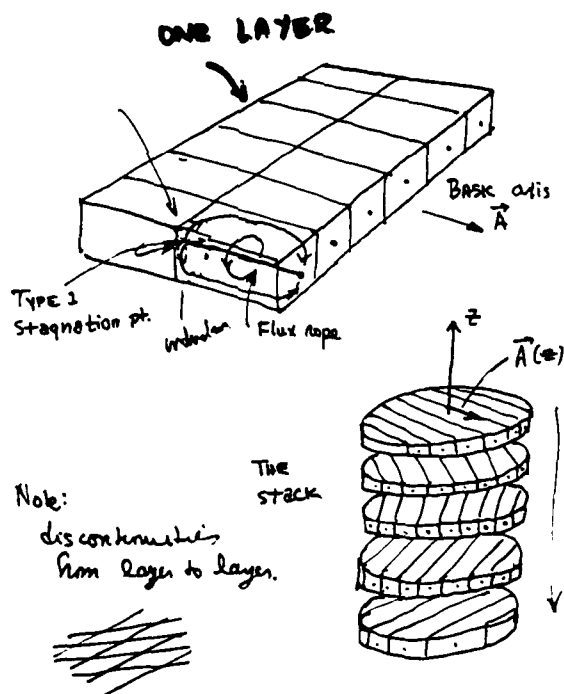 ONE LAYER
BASK axis
A
TYPE 1
Stagnation pt.
Flux rope
z
A(z)
THE
stack
Note:
discontinuities
from layer to layer.